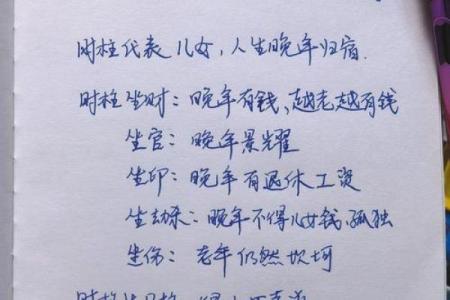 时柱代表儿女，人生晚年归宿.
时柱坐财：晚年有钱、越老越有钱
坐官：晚年景耀
坐印：晚年有退休工资
坐劫杀：晚年不得儿女钱、孤独
坐伤：老年仍然坎坷
时柱